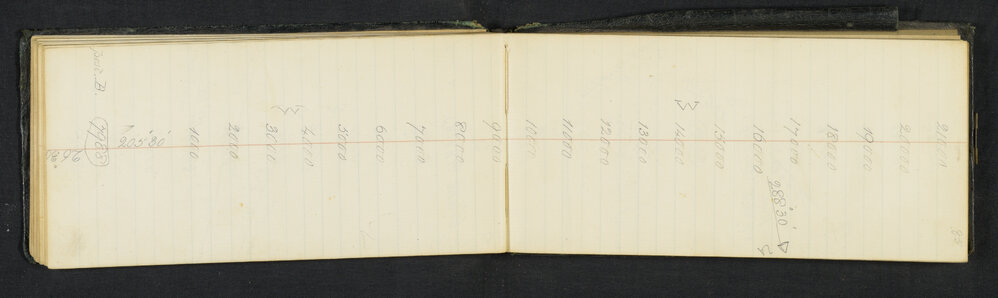 788
205.80
1000
2000
3000
4000
5000
6000
7000
8000
9000
10000
11000
12000
13000
14000
15000
16000
288.30
17000
18000
19000
20000
21000